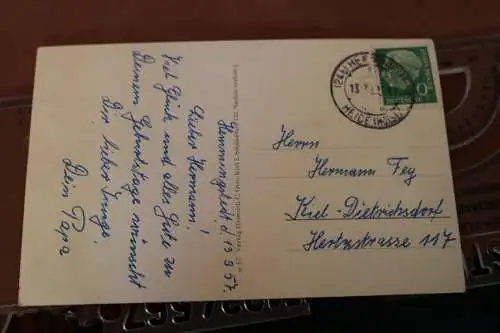 Hemmingstedt d, 13.3.57.
Lieber Hermann!
Viel Glück und alles Gute zu
Deinem Geburtstage wünscht
Dir lieber Junge
Dein Papa
Herrn
Hermann Fey
Kiel-Dietrichsdorf
Hertzstrasse 117
(24b) HE
HEIDE (HOLST)